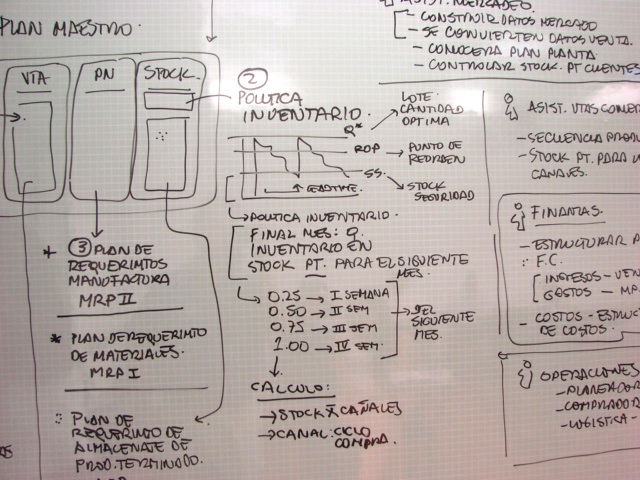 PLAN MAESTRO.
VTA
PN
STOCK.
* ③ PLAN DE
REQUERIMTOS
MANUFACTURA
MRP II
* PLAN DE REQUERIMTO
DE MATERIALES.
MRP I
PLAN DE
REQUERIMTO DE
ALMACENATE DE
PROD. TERMINADO.
②
POLITICA
INVENTARIO.
Q*
LOTE.
CANTIDAD
OPTIMA
ROP
PUNTO DE
REORDEN
SS.
STOCK
SEGURIDAD
LEADTIME.
POLITICA INVENTARIO.
FINAL MES: Q.
INVENTARIO EN
STOCK PT. PARA EL SIGUIENTE
MES.
0.25 → I SEMANA
0.50 → II SEM
0.75 → III SEM
1.00 → IV SEM.
DEL
SIGUIENTE
MES.
CALCULO:
→ STOCK X CANALES
→ CANAL: CICLO
COMPRA.
ASIST. MERCADEO.
- CONSTRUIR DATOS MERCADO
- SE CONVIERTEN DATOS VENTA.
- CONOCERA PLAN PLANTA
- CONTROLAR STOCK. PT CLIENTES
ASIST. VTAS
- SECUENCIA
- STOCK PT. PARA
CANALES.
FINANZAS.
- ESTRUCTURAR
F.C.
INGRESOS -
GASTOS -
- COSTOS -
DE COSTOS.
OPERACIONES
- PLANEADOR
- COMPRADOR
- LOGISTICA -